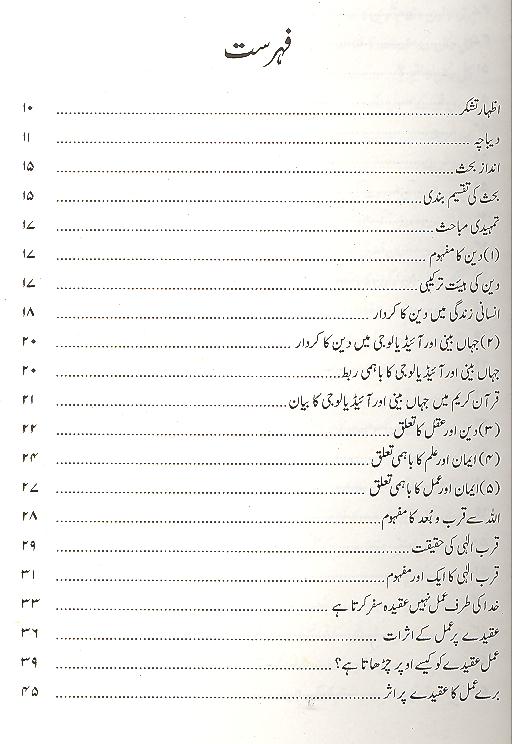 فہرست
اظہار تشکر ۱۰
دیباچہ ۱۱
انداز بحث ۱۵
بحث کی تقسیم بندی ۱۵
تمہیدی مباحث ۱۷
(۱) دین کا مفہوم ۱۷
دین کی ہیئت ترکیبی ۱۷
انسانی زندگی میں دین کا کردار ۱۸
(۲) جہاں بینی اور آئیڈیالوجی میں دین کا کردار ۲۰
جہاں بینی اور آئیڈیالوجی کا باہمی ربط ۲۰
قرآن کریم میں جہاں بینی اور آئیڈیالوجی کا بیان ۲۱
(۳) دین اور عقل کا تعلق ۲۲
(۴) ایمان اور علم کا باہمی تعلق ۲۴
(۵) ایمان اور عمل کا باہمی تعلق ۲۷
اللہ سے قرب و بُعد کا مفہوم ۲۸
قرب الٰہی کی حقیقت ۲۹
قرب الٰہی کا ایک اور مفہوم ۳۱
خدا کی طرف عمل نہیں عقیدہ سفر کرتا ہے ۳۳
عقیدے پر عمل کے اثرات ۳۶
عمل عقیدے کو کیسے اوپر چڑھاتا ہے؟ ۳۹
برے عمل کا عقیدے پر اثر ۴۵